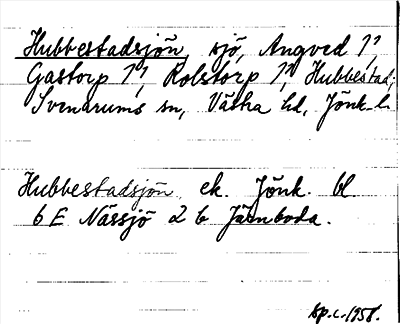 Hubbestadsjön, sjö, Angved 1¹,
Gastorp 1¹, Rolstorp 1², Hubbestad,
Svenarums sn, Västra hd, Jönk. l.
Hubbestadsjön ek. Jönk. bl
6 E Nässjö 2 b Järnboda.
1958.